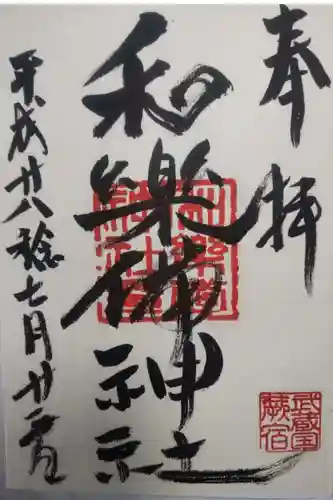 奉拝
和樂備神社
平成廿八稔七月廿二日
武蔵国
蕨宿